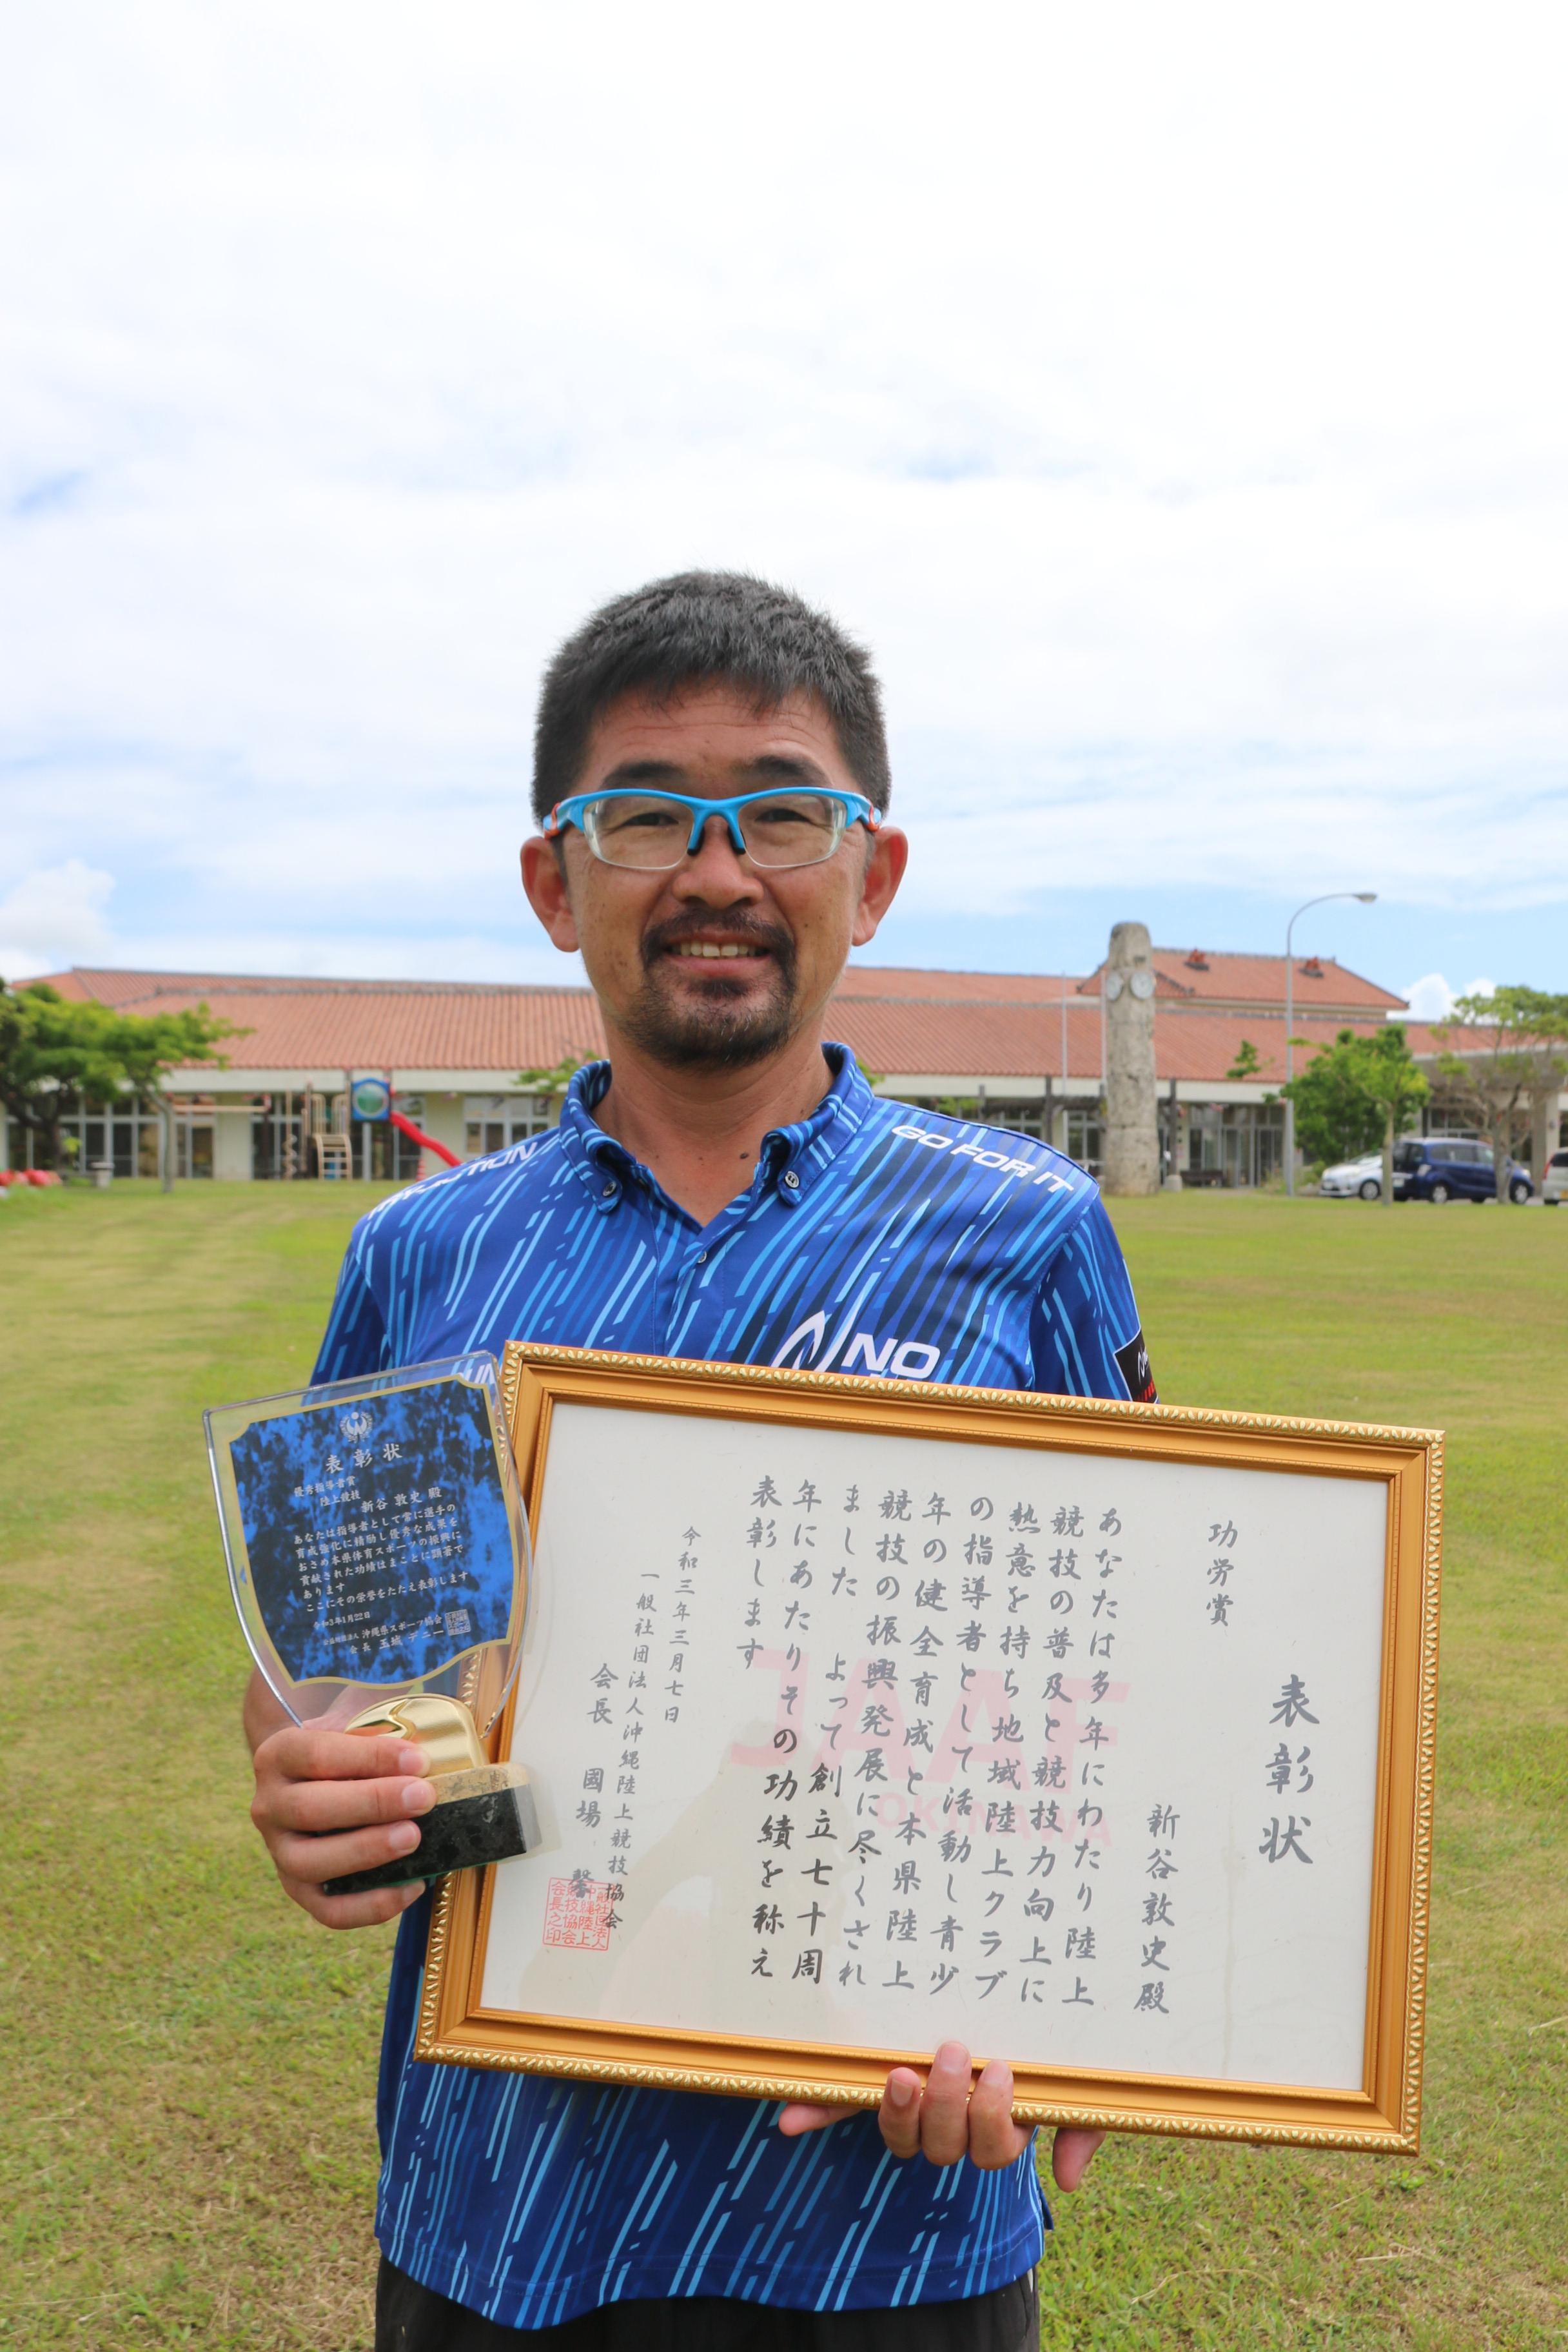 GO FOR IT
NO
表彰状
優秀指導者賞
陸上競技
新谷 敦史 殿
あなたは指導者として常に選手の
育成強化に精励し優秀な成果を
おさめ本県体育スポーツの振興に
貢献された功績はまことに顕著で
あります
ここにその栄誉をたたえ表彰します
令和3年1月22日
公益財団法人 沖縄県スポーツ協会
会長 玉城 デニー
表彰状
功労賞
新谷敦史殿
あなたは多年にわたり陸上
競技の普及と競技力向上に
熱意を持ち地域陸上クラブ
の指導者として活動し青少
年の健全育成と本県陸上
競技の振興発展に尽くされ
ました よって創立七十周
年にあたりその功績を称え
表彰します
令和三年三月七日
一般社団法人沖縄陸上競技協会
会長 國場 馨
JAAF
OKINAWA